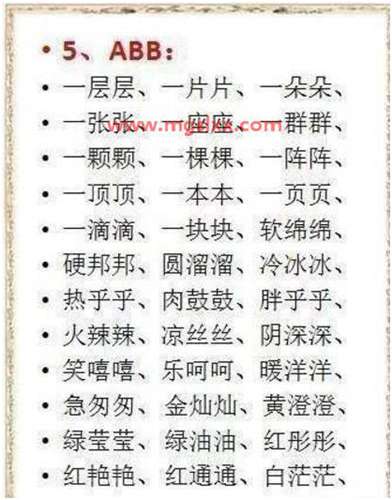 • 5、ABB：
• 一层层、一片片、一朵朵、
• 一张张、一座座、一群群、
www.mg
xx.com
• 一颗颗、一棵棵、一阵阵、
• 一顶顶、一本本、一页页、
• 一滴滴、一块块、软绵绵、
• 硬邦邦、圆溜溜、冷冰冰、
• 热乎乎、肉鼓鼓、胖乎乎、
• 火辣辣、凉丝丝、阴深深、
• 笑嘻嘻、乐呵呵、暖洋洋、
• 急匆匆、金灿灿、黄澄澄、
• 绿莹莹、绿油油、红彤彤、
• 红艳艳、红通通、白茫茫、